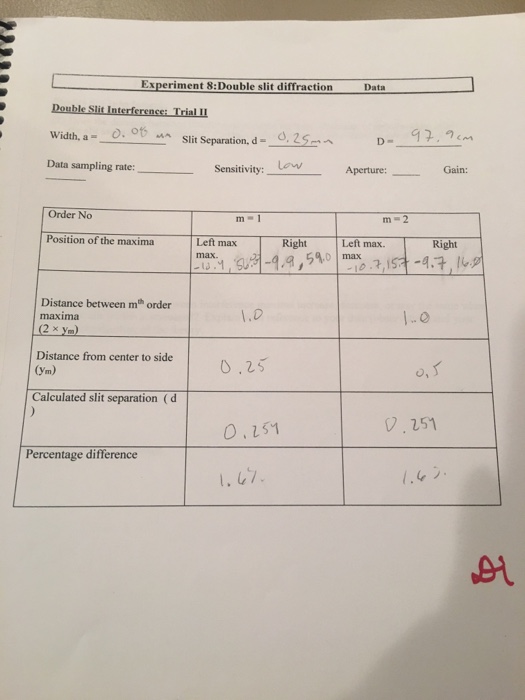 Experiment 8:Double slit diffraction Data
Double Slit Interference: Trial II
Width, a = 0.08 mm Slit Separation, d = 0.25mm D= 97.9cm
Data sampling rate: Sensitivity: Low Aperture: Gain:
Order No m = 1 m = 2
Position of the maxima Left max Right Left max. Right
max. max
-9.9, 59.0 -10.7, -9.7,
Distance between mth order
maxima 1.0 1.0
(2 × ym)
Distance from center to side 0.25 0.5
(ym)
Calculated slit separation ( d
)
0.254 0.254
Percentage difference
1.6%. 1.6%.